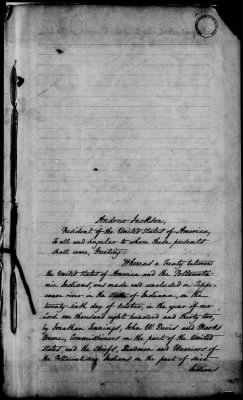 Andrew Jackson,
President of the United States of America,
To all and singular to whom these presents
shall come, Greeting:
Whereas a Treaty between
the United States of America and the Pottawata-
mie Indians, was made and concluded on Tippe-
canoe river in the State of Indiana, on the
twenty-sixth day of October, in the year of our
Lord one thousand eight hundred and thirty two,
by Jonathan Jennings, John W. Davis and Marks
Crume, Commissioners on the part of the United
States, and the Chiefs, Headmen and Warriors of
the Pottawatamie Indians on the part of said